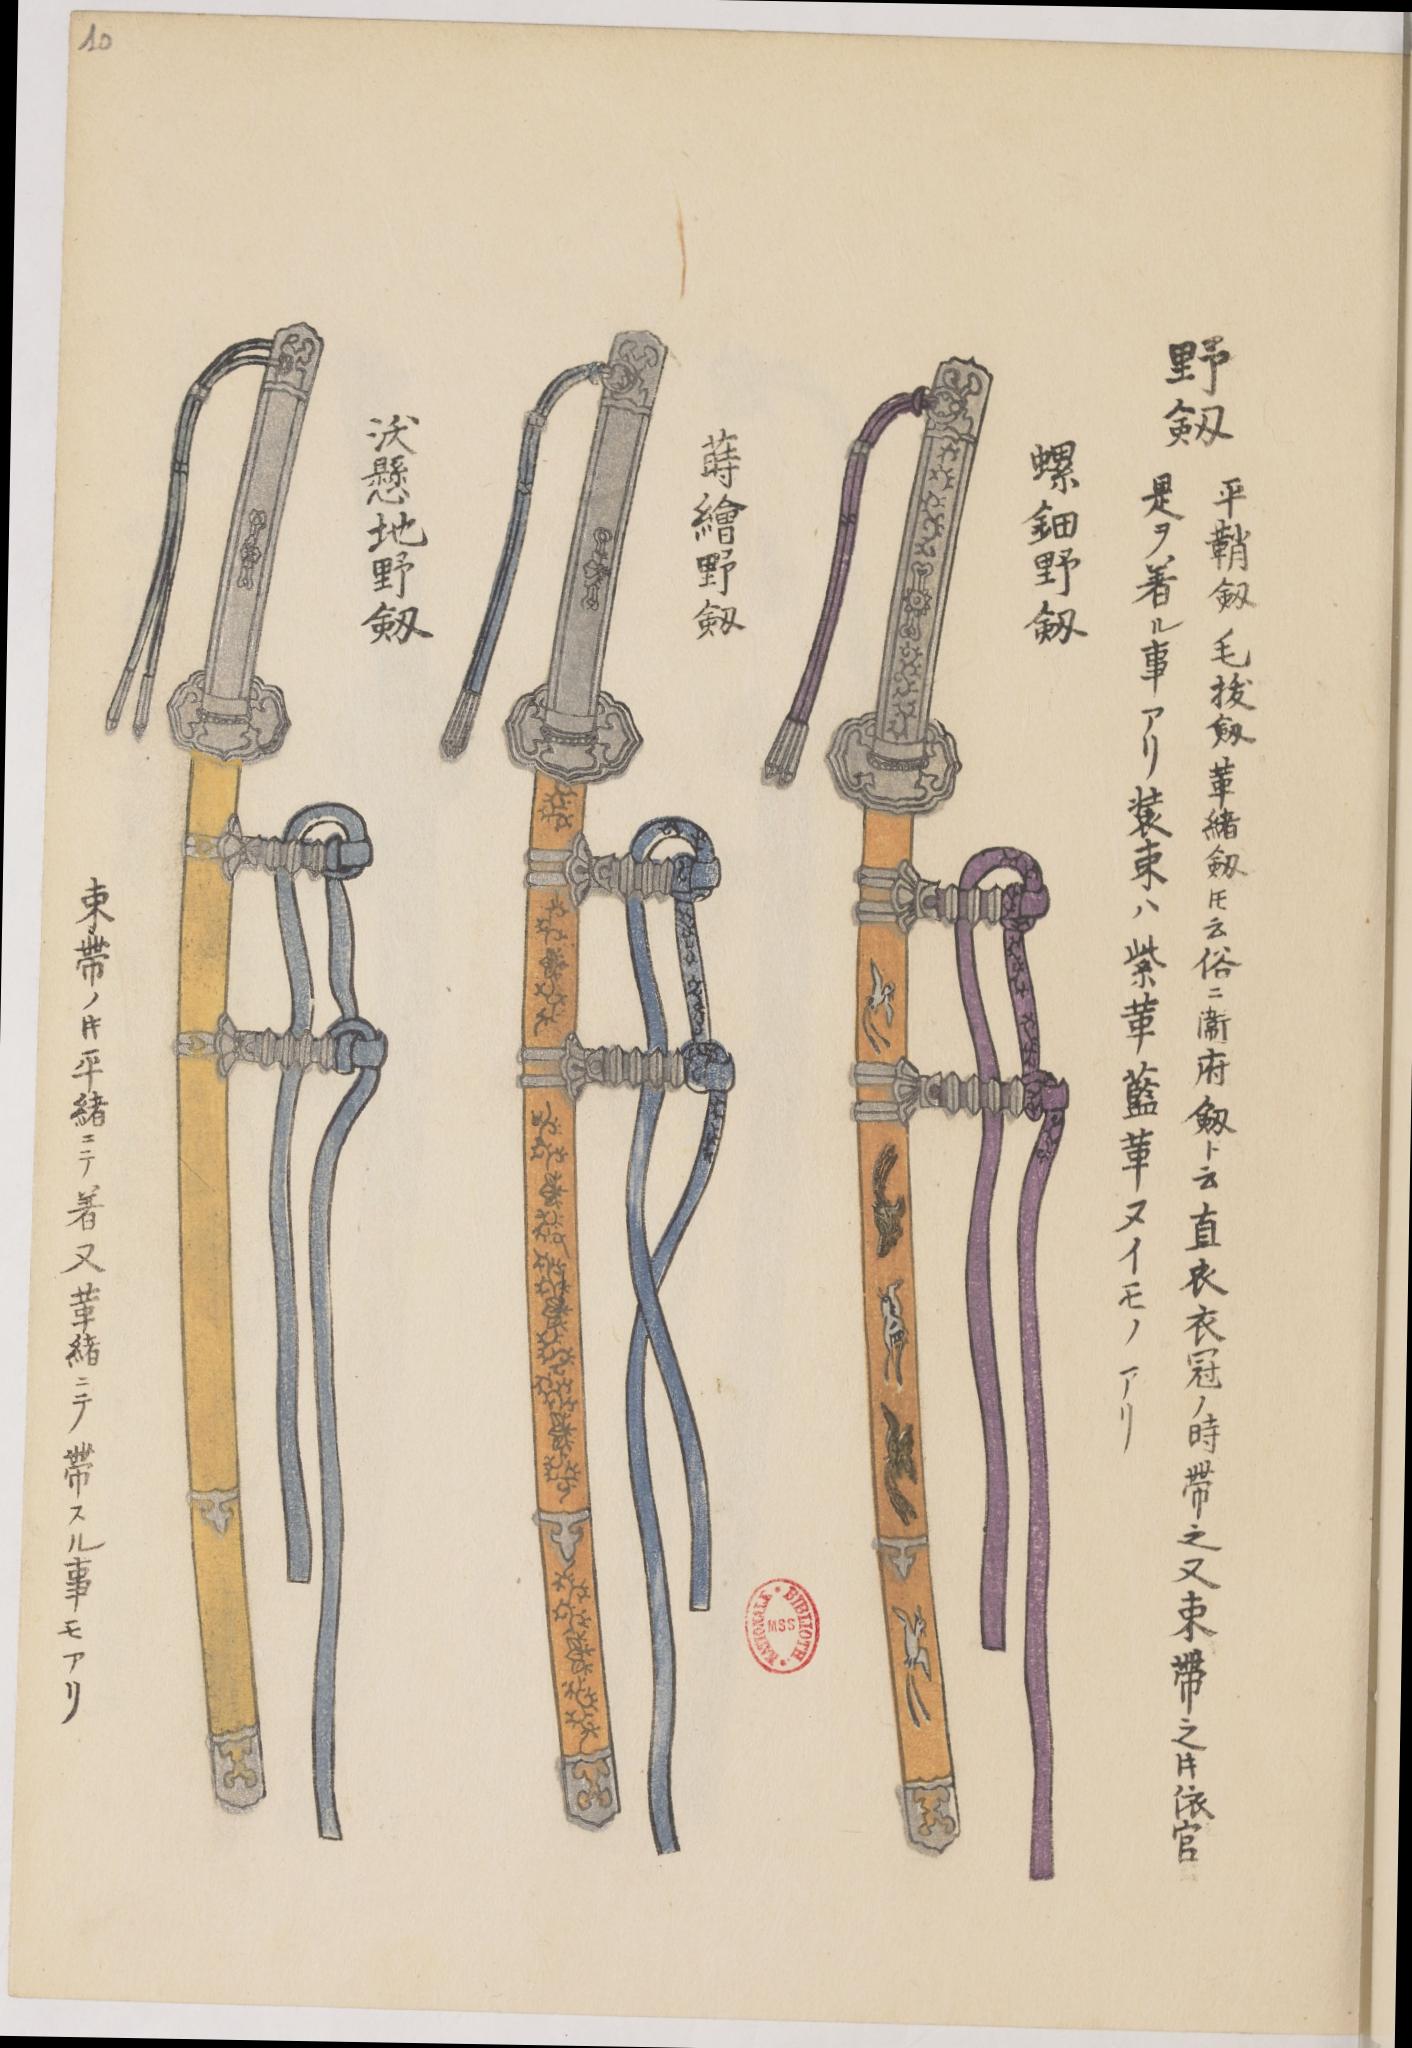 野剱
平鞘剱 毛抜剱革緒剱モ云俗ニ衞府剱ト云直衣衣冠ノ時帶之又束帶之片依官
是ヲ着ル事アリ装束ハ紫革藍革ヌイモノアリ
螺鈿野剱
蒔繪野剱
沃懸地野剱
束帶ノ片平緒ニテ着又革緒ニテ帶スル事モアリ
10
BIBLIOTH. NATIONALE
MSS